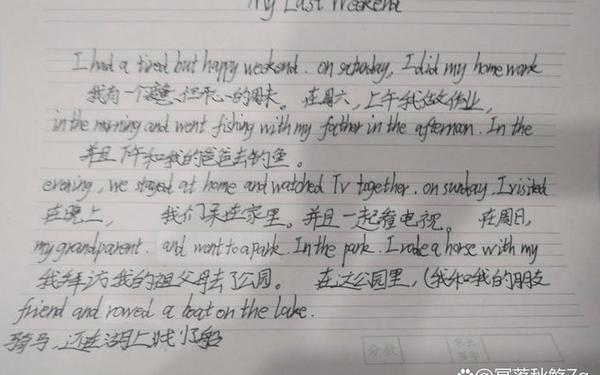 My Last Weekend
I had a tired but happy weekend. on saturday, I did my home work
我有一个疲惫但开心的周末。 在周六，上午我做作业，
in the morning and went fishing with my father in the afternoon. In the
并且下午和我的爸爸去钓鱼。
evening, we stayed at home and watched Tv together. on sunday. I visited
在晚上， 我们呆在家里。并且一起看电视。 在周日，
my grandparent. and went to a park. In the park. I rode a horse with my
我拜访我的祖父母去了公园。 在这公园里，(我和我的朋友
friend and rowed a boat on the lake.
骑马，还在湖上划小船
分数